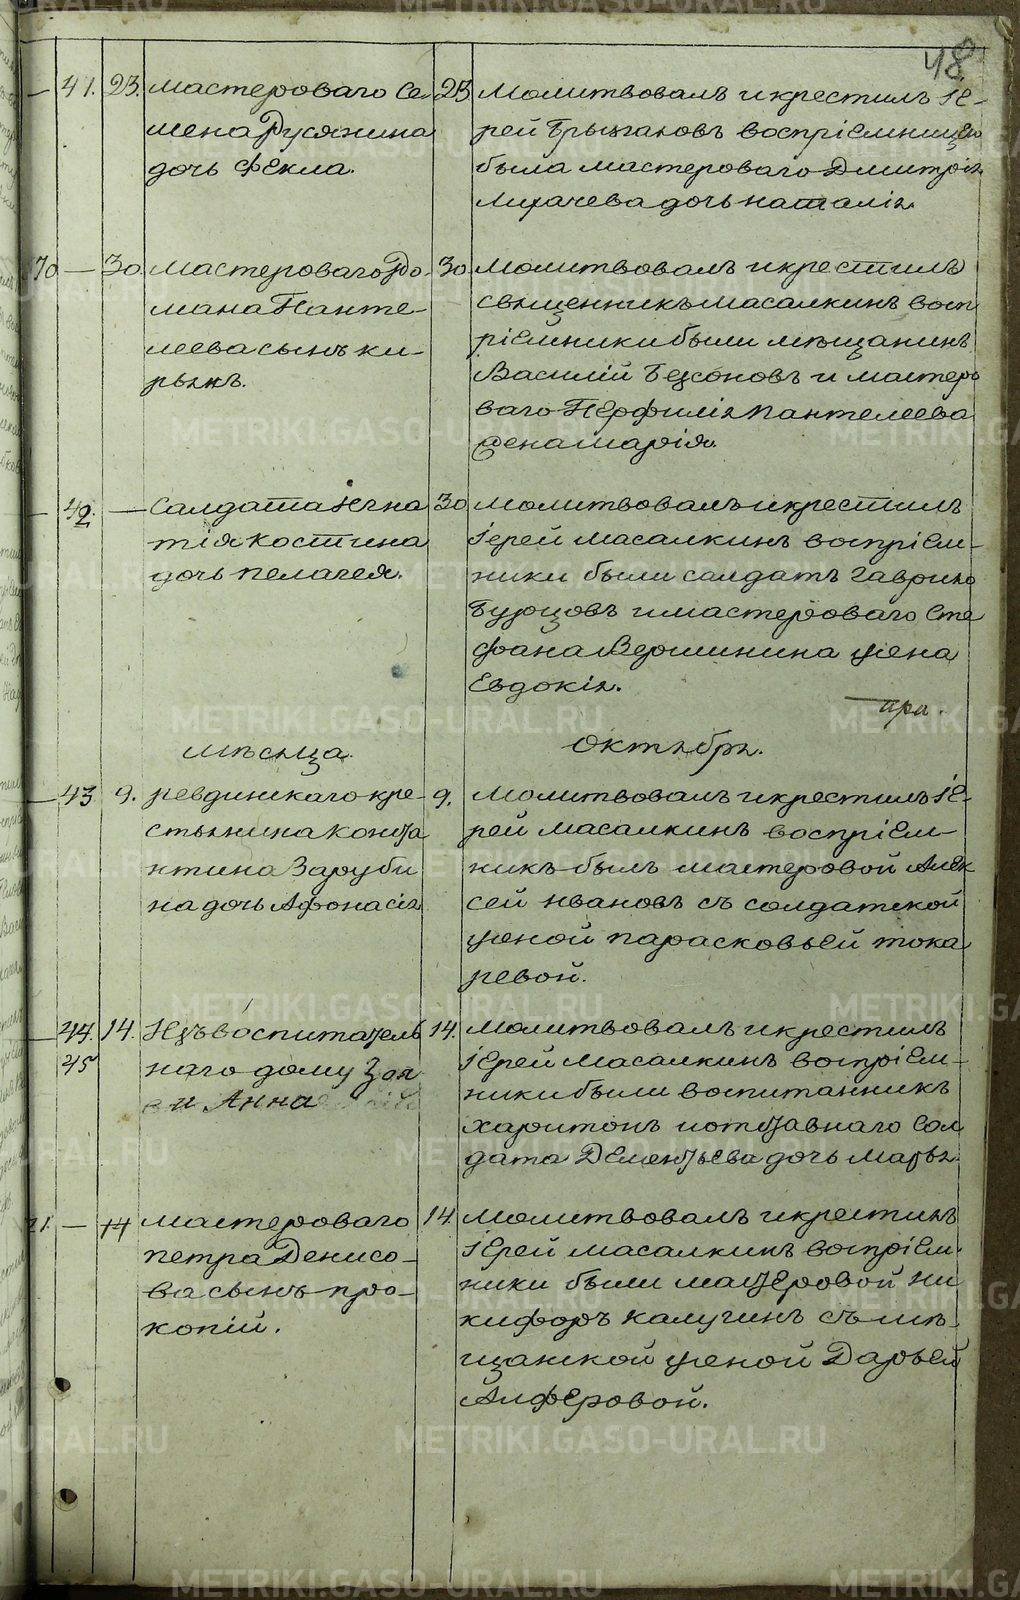 48
41. 23. мастероваго Се-
мена Русянина
дочь Фекла.
23 Молитвовалъ и крестилъ Іе-
рей Брызгаловъ воспріемницею
была мастероваго Дмитрія
Лихачева дочь Наталія
70 — 30. мастероваго Ро-
мана Панте-
леева сынъ Ки-
рьякъ.
30 Молитвовалъ и крестилъ
священникъ Масалкинъ восп
ріемники были мѣщанинъ
Василій Безсоновъ и мастеро
ваго Перфилія Пантелеева
жена Марія.
42. — Салдата Игна
тія Костина
дочь Пелагея.
30 Молитвовалъ и крестилъ
Іерей Масалкинъ воспріем-
ники были салдатъ Гаврило
Бурцовъ и мастероваго Сте
фана Вершинина жена
Евдокія.
мѣсяца октября.
43 9. ревдинскаго кре-
стьянина Конста
нтина Заруби
на дочь Афонасія
9. Молитвовалъ и крестилъ Іе-
рей Масалкинъ воспріем-
никъ былъ мастеровой Алек
сей Ивановъ съ солдатской
женой Парасковьей Тока
ревой.
44. 14. Изъ воспитатель
45 наго дому Зоя
и Анна
14. Молитвовалъ и крестилъ
Іерей Масалкинъ воспріем-
ники были воспитанникъ
Харитонъ и отставнаго Сол
дата Дементьева дочь Марья.
71. — 14 мастероваго
Петра Денисо-
ва сынъ Про-
копій.
14. Молитвовалъ и крестилъ
Іерей Масалкинъ воспріем-
ники были мастеровой Ни
кифоръ Калугинъ съ мѣ-
щанской женой Дарьей
Алферовой.
METRIKI.GASO-URAL.RU